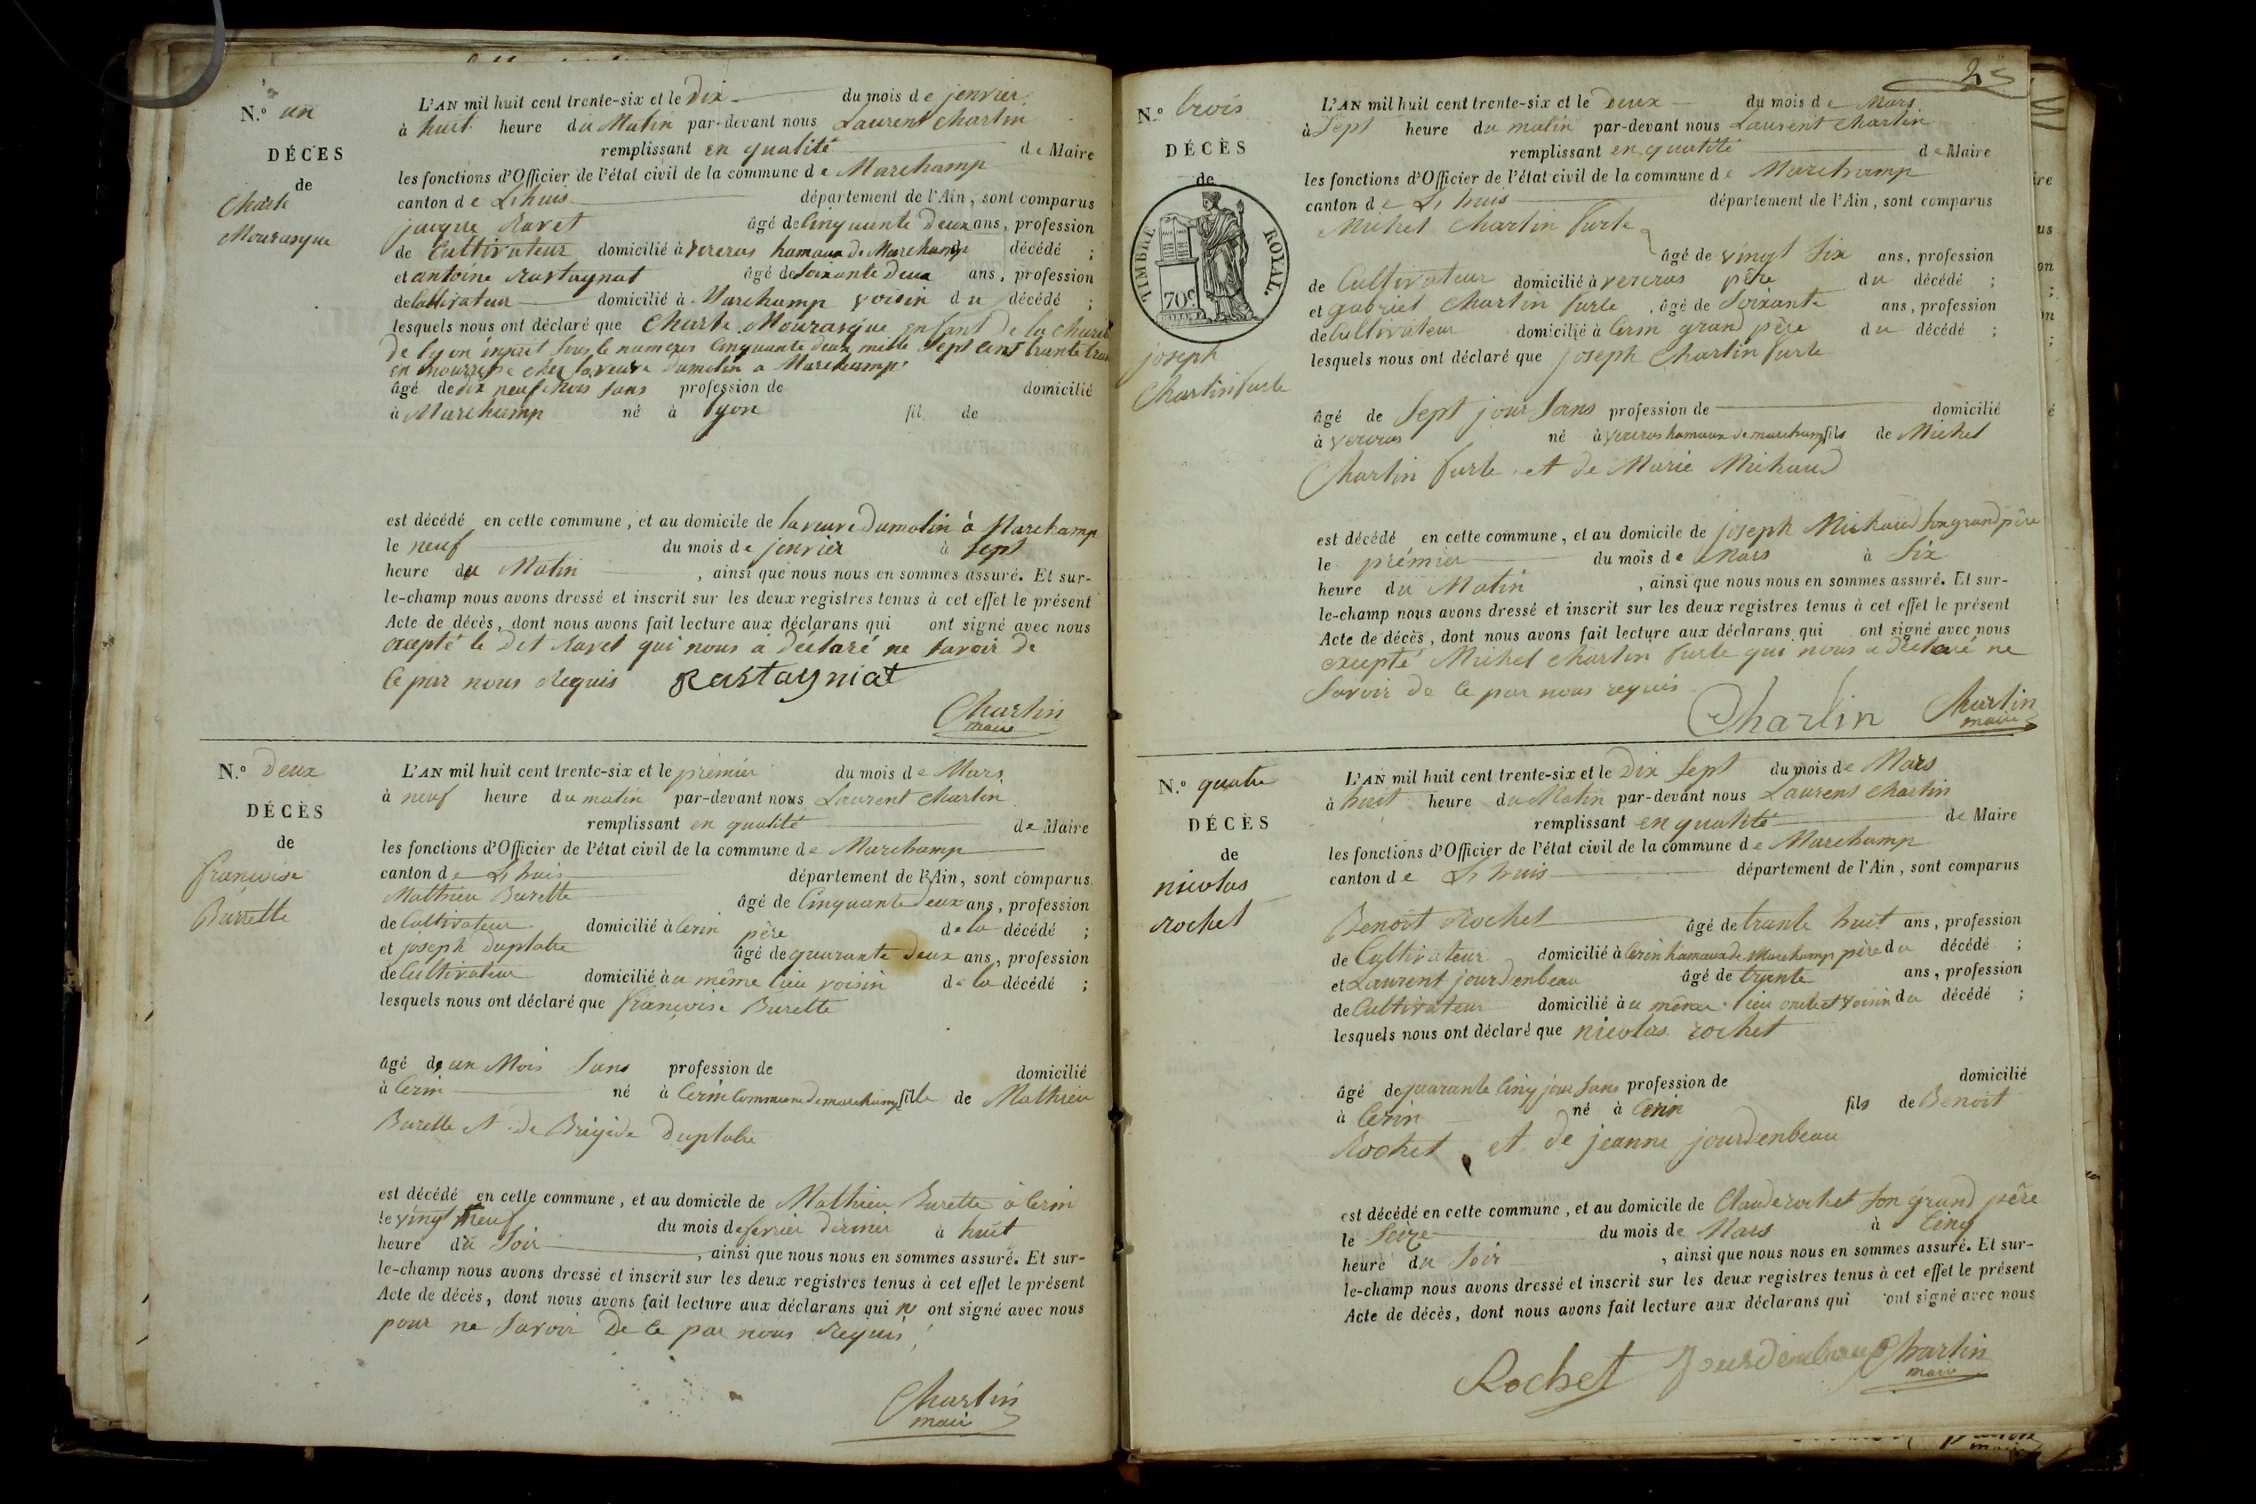 N.º un
DÉCÈS
de
Charle
Mourasque
L'AN mil huit cent trente-six et le Dix du mois de jenvier
à huit heure du Matin par-devant nous Laurent Charlin
remplissant en qualité de Maire
les fonctions d'Officier de l'état civil de la commune de Marchamp
canton de Lhuis département de l'Ain, sont comparus
jacque Ravet âgé de Cinquante Deux ans, profession
de Cultivateur domicilié à vereras hamaux de Marchamp décédé ;
et antoine Rastagnat âgé de Soixante Deux ans, profession
de Cultivateur domicilié à Marchamp voisin du décédé ;
lesquels nous ont déclaré que Charle Mourasque enfant De la
De lyon inscrit Sous le numeros Cinquante deux mille Sept Cent trante
en nourrisse chez la veuve Dumolin a Marchamp
âgé de dix neuf mois Sans profession de domicilié
à Marchamp né à lyon fil de
est décédé en cette commune, et au domicile de la veuve Dumolin à Marchamp
le neuf du mois de jenvier à Sept
heure du Matin , ainsi que nous nous en sommes assuré. Et sur-
le-champ nous avons dressé et inscrit sur les deux registres tenus à cet effet le présent
Acte de décès, dont nous avons fait lecture aux déclarans qui ont signé avec nous
excepté le Dit Ravet qui nous a déclaré ne Savoir De
Ce par nous Requis Rastagniat
Charlin
maire
N.º Deux
DÉCÈS
de
françoise
Burette
L'AN mil huit cent trente-six et le prémier du mois de Mars
à neuf heure du matin par-devant nous Laurent Charlin
remplissant en qualité de Maire
les fonctions d'Officier de l'état civil de la commune de Marchamp
canton de Lhuis département de l'Ain, sont comparus
Mathieu Burette âgé de Cinquante Deux ans, profession
de Cultivateur domicilié à Cerin père de la décédé ;
et joseph Duplatre âgé de quarante Deux ans, profession
de Cultivateur domicilié àu même lieu voisin de la décédé ;
lesquels nous ont déclaré que françoise Burette
âgé de un Mois Sans profession de domicilié
à Cerin né à Cerin Commune de marchamp fille de Mathieu
Burette et De Brigide Duplatre
est décédé en cette commune, et au domicile de Mathieu Burette à Cerin
le vingt Neuf du mois de fevrier dernier à huit
heure du Soir , ainsi que nous nous en sommes assuré. Et sur-
le-champ nous avons dressé et inscrit sur les deux registres tenus à cet effet le présent
Acte de décès, dont nous avons fait lecture aux déclarans qui n ont signé avec nous
pour ne Savoir De Ce par nous Requis
Charlin
maire
N.º trois
DÉCÈS
de
TIMBRE ROYAL.
70c
joseph
Charlin furle
L'AN mil huit cent trente-six et le Deux du mois de Mars
à Sept heure du matin par-devant nous Laurent Charlin
remplissant en qualité de Maire
les fonctions d'Officier de l'état civil de la commune de Marchamp
canton de Lhuis département de l'Ain, sont comparus
Michel Charlin furle
âgé de vingt Six ans, profession
de Cultivateur domicilié à vereras père du décédé ;
et gabriel Charlin furle , âgé de Soixante ans, profession
de Cultivateur domicilié à Cerin grand père du décédé ;
lesquels nous ont déclaré que joseph Charlin furle
âgé de Sept jour Sans profession de domicilié
à vereras né à vereras hamaux de marchamp fils de Michel
Charlin furle et de Marie Michaud
est décédé en cette commune, et au domicile de joseph Michaud Son grand père
le prémier du mois de Mars à Six
heure du Matin , ainsi que nous nous en sommes assuré. Et sur-
le-champ nous avons dressé et inscrit sur les deux registres tenus à cet effet le présent
Acte de décès, dont nous avons fait lecture aux déclarans qui ont signé avec nous
excepté Michel Charlin furle qui nous a déclaré ne
Savoir De Ce par nous requis
Charlin Charlin
maire
N.º quatre
DÉCÈS
de
nicolas
rochet
L'AN mil huit cent trente-six et le Dix Sept du mois de Mars
à huit heure du Matin par-devant nous Laurent Charlin
remplissant en qualité de Maire
les fonctions d'Officier de l'état civil de la commune de Marchamp
canton de Lhuis département de l'Ain, sont comparus
Benoit Rochet âgé de trante huit ans, profession
de Cultivateur domicilié à Cerin hamaux de Marchamp père du décédé ;
et Laurent jourdenbeau âgé de trante ans, profession
de Cultivateur domicilié àu même lieu oncle et voisin du décédé ;
lesquels nous ont déclaré que nicolas rochet
âgé de quarante Cinq jour Sans profession de domicilié
à Cerin né à Cerin fils de Benoit
Rochet et De jeanne jourdenbeau
est décédé en cette commune, et au domicile de Claude rochet Son grand père
le Seize du mois de Mars à Cinq
heure du Soir , ainsi que nous nous en sommes assuré. Et sur-
le-champ nous avons dressé et inscrit sur les deux registres tenus à cet effet le présent
Acte de décès, dont nous avons fait lecture aux déclarans qui ont signé avec nous
Rochet Jourdenbeau Charlin
maire